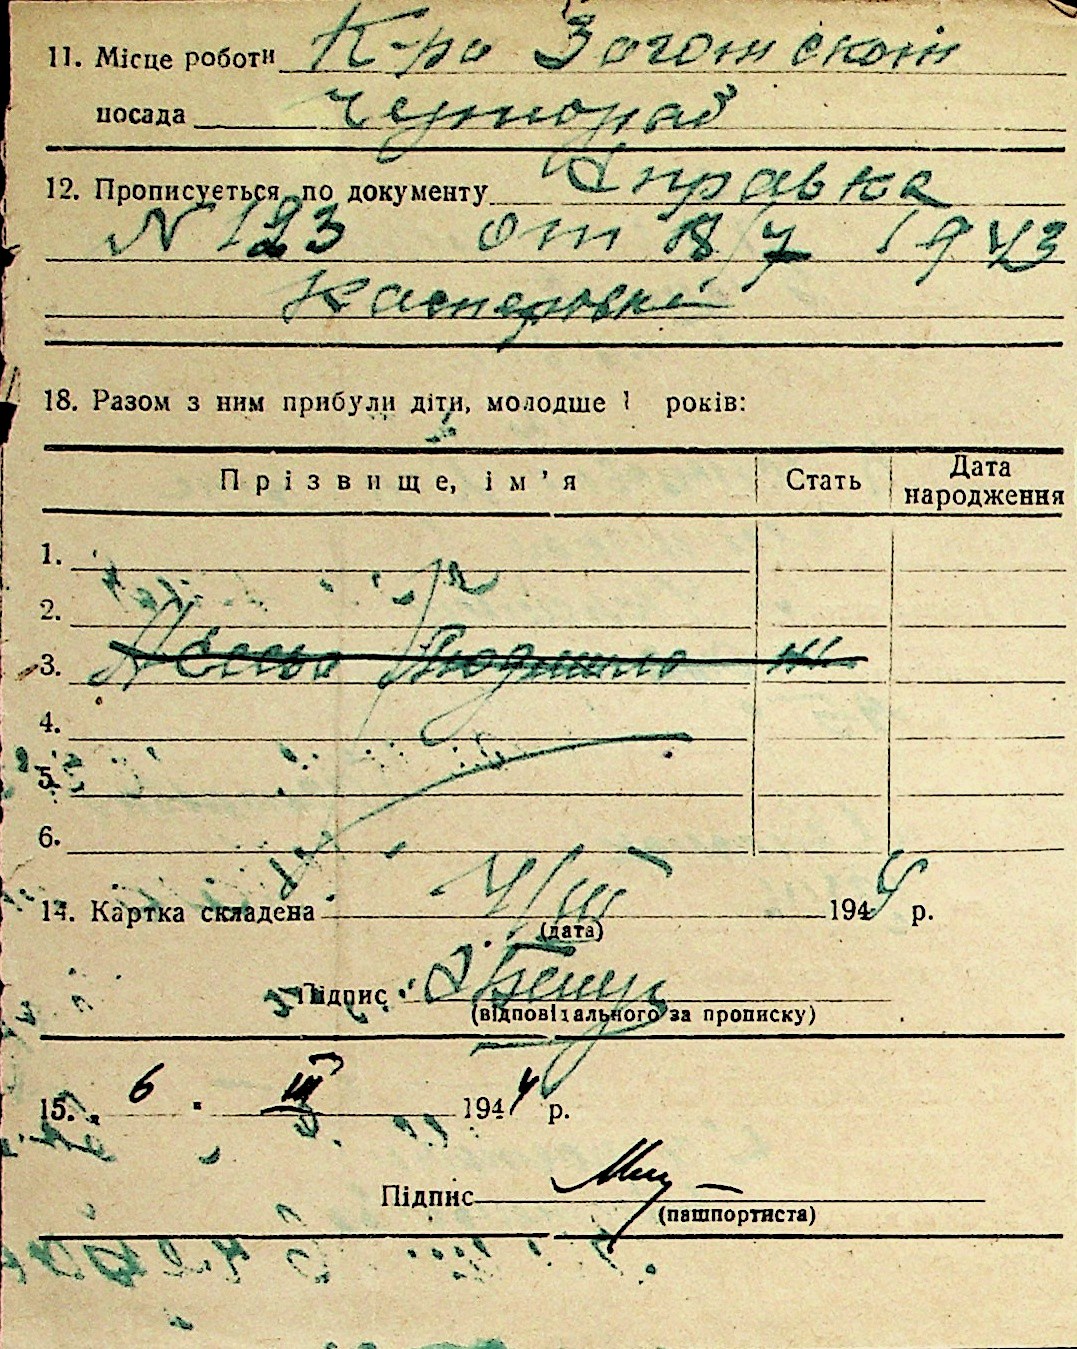 11. Місце роботи К-ра Заготскот
посада чернораб
12. Прописується по документу Справка
№ 123 от 18/7 1943
18. Разом з ним прибули діти, молодше 1 років:
Прізвище, ім'я Стать Дата народження
1.
2.
3. Людмила ж
4.
5.
6.
14. Картка складена 4/III 1944 р.
(дата)
Підпис
(відповідального за прописку)
15. „ 6 " III 1944 р.
Підпис
(пашпортиста)